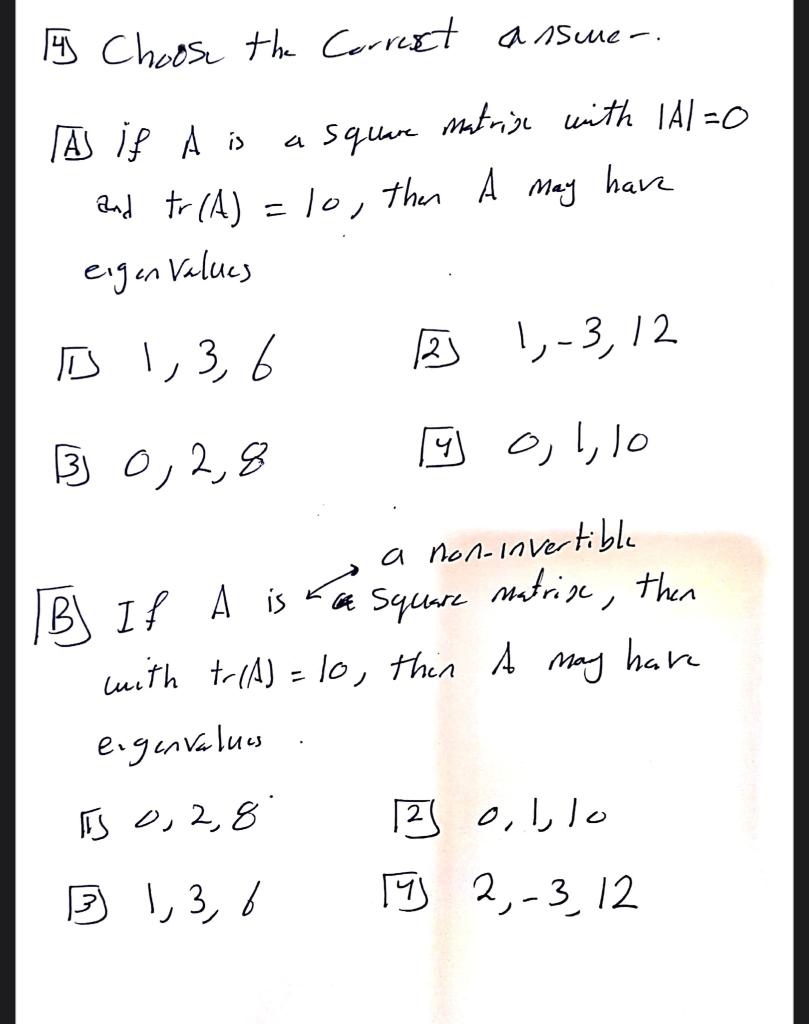 4 Choose the Correct answer.
A if A is a square matrix with |A|=0
and tr(A) = 10, then A may have
eigenvalues
1 1, 3, 6 2 1, -3, 12
3 0, 2, 8 4 0, 1, 10
a non-invertible
B If A is square matrix, then
with tr(A) = 10, then A may have
eigenvalues .
1 0, 2, 8 2 0, 1, 10
3 1, 3, 6 4 2, -3, 12